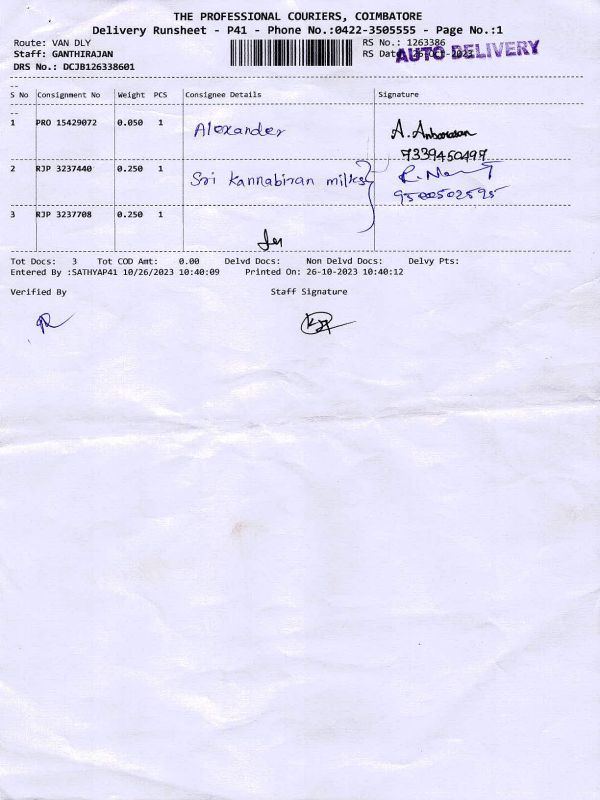 THE PROFESSIONAL COURIERS, COIMBATORE
Delivery Runsheet - P41 - Phone No.:0422-3505555 - Page No.:1
Route: VAN DLY
RS No.: 1263386
Staff: GANTHIRAJAN
RS Date
AUTO DELIVERY
DRS No.: DCJB126338601
S No Consignment No Weight PCS Consignee Details Signature
1 PRO 15429072 0.050 1 Alexander A. Anbarasan
7339450497
2 RJP 3237440 0.250 1 Sri Kannabiran milks
9500502595
3 RJP 3237708 0.250 1
Tot Docs: 3 Tot COD Amt: 0.00 Delvd Docs: Non Delvd Docs: Delvy Pts:
Entered By :SATHYAP41 10/26/2023 10:40:09 Printed On: 26-10-2023 10:40:12
Verified By Staff Signature